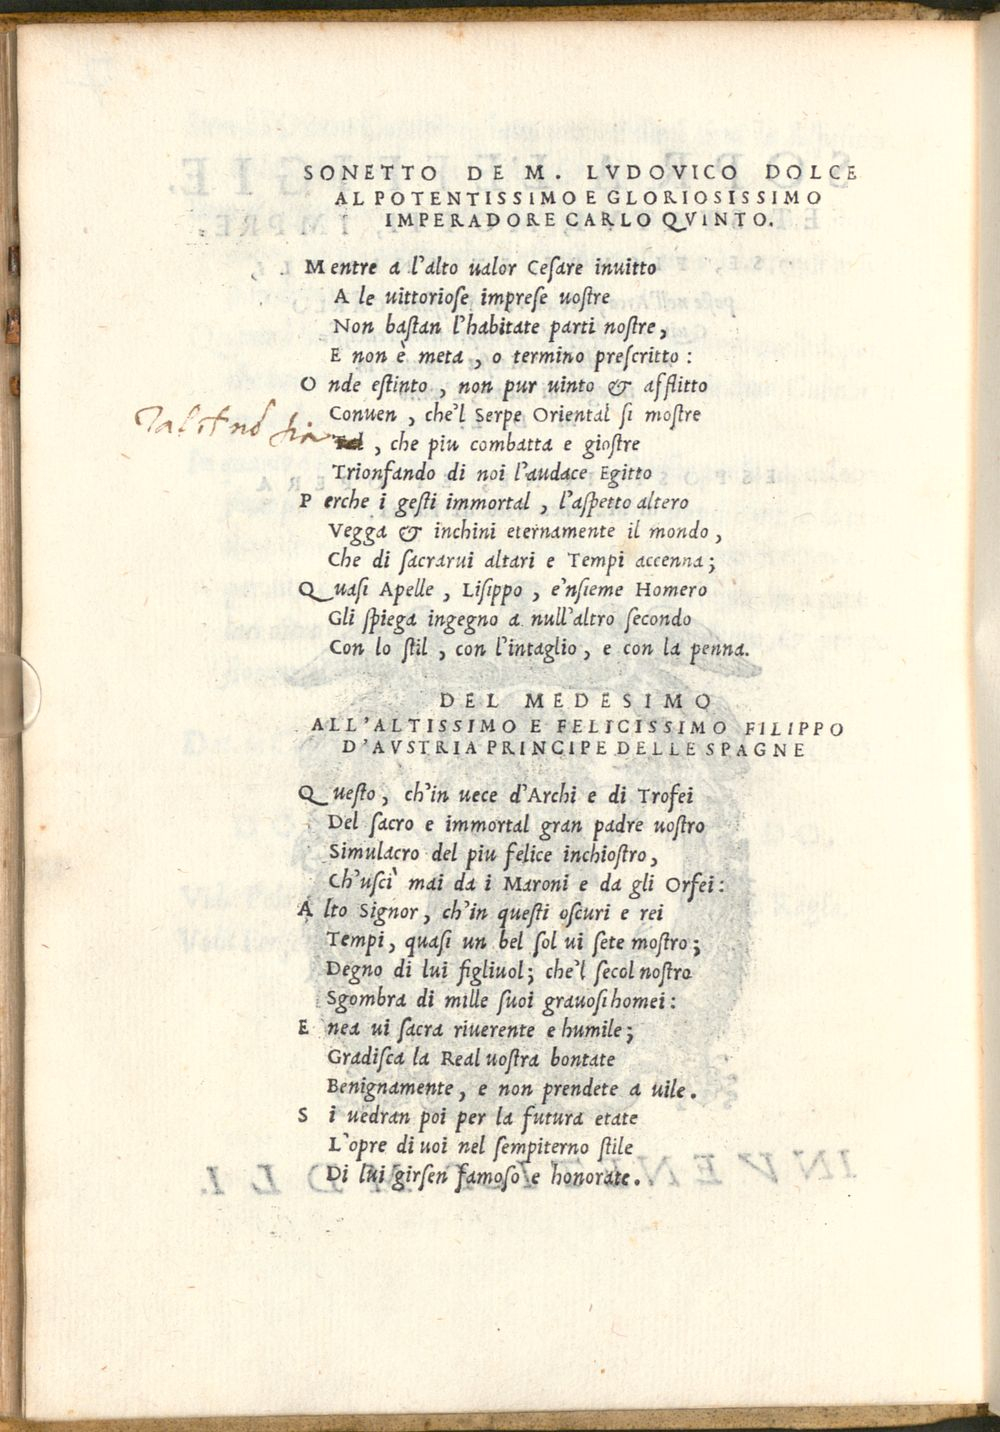 SONETTO DE M. LVDOVICO DOLCE
AL POTENTISSIMO E GLORIOSISSIMO
IMPERADORE CARLO QVINTO.
Mentre a l'alto ualor Cesare inuitto
A le uittoriose imprese uostre
Non bastan l'habitate parti nostre,
E non è meta, o termino prescritto:
Onde estinto, non pur uinto & afflitto
Conuen, che'l Serpe Oriental si mostre
, che piu combatta e giostre
Trionfando di noi l'audace Egitto
Perche i gesti immortal, l'aspetto altero
Vegga & inchini eternamente il mondo,
Che di sacrarui altari e Tempi accenna;
Quasi Apelle, Lisippo, e'nsieme Homero
Gli spiega ingegno a null'altro secondo
Con lo stil, con l'intaglio, e con la penna.
DEL MEDESIMO
ALL'ALTISSIMO E FELICISSIMO FILIPPO
D'AVSTRIA PRINCIPE DELLE SPAGNE
Questo, ch'in uece d'Archi e di Trofei
Del sacro e immortal gran padre uostro
Simulacro del piu felice inchiostro,
Ch'uscì mai da i Maroni e da gli Orfei:
Alto Signor, ch'in questi oscuri e rei
Tempi, quasi un bel sol ui sete mostro;
Degno di lui figliuol; che'l secol nostro
Sgombra di mille suoi grauosi homei:
Enea ui sacra riuerente e humile;
Gradisca la Real uostra bontate
Benignamente, e non prendete a uile.
Si uedran poi per la futura etate
L'opre di uoi nel sempiterno stile
Di lui girsen famoso e honorate.